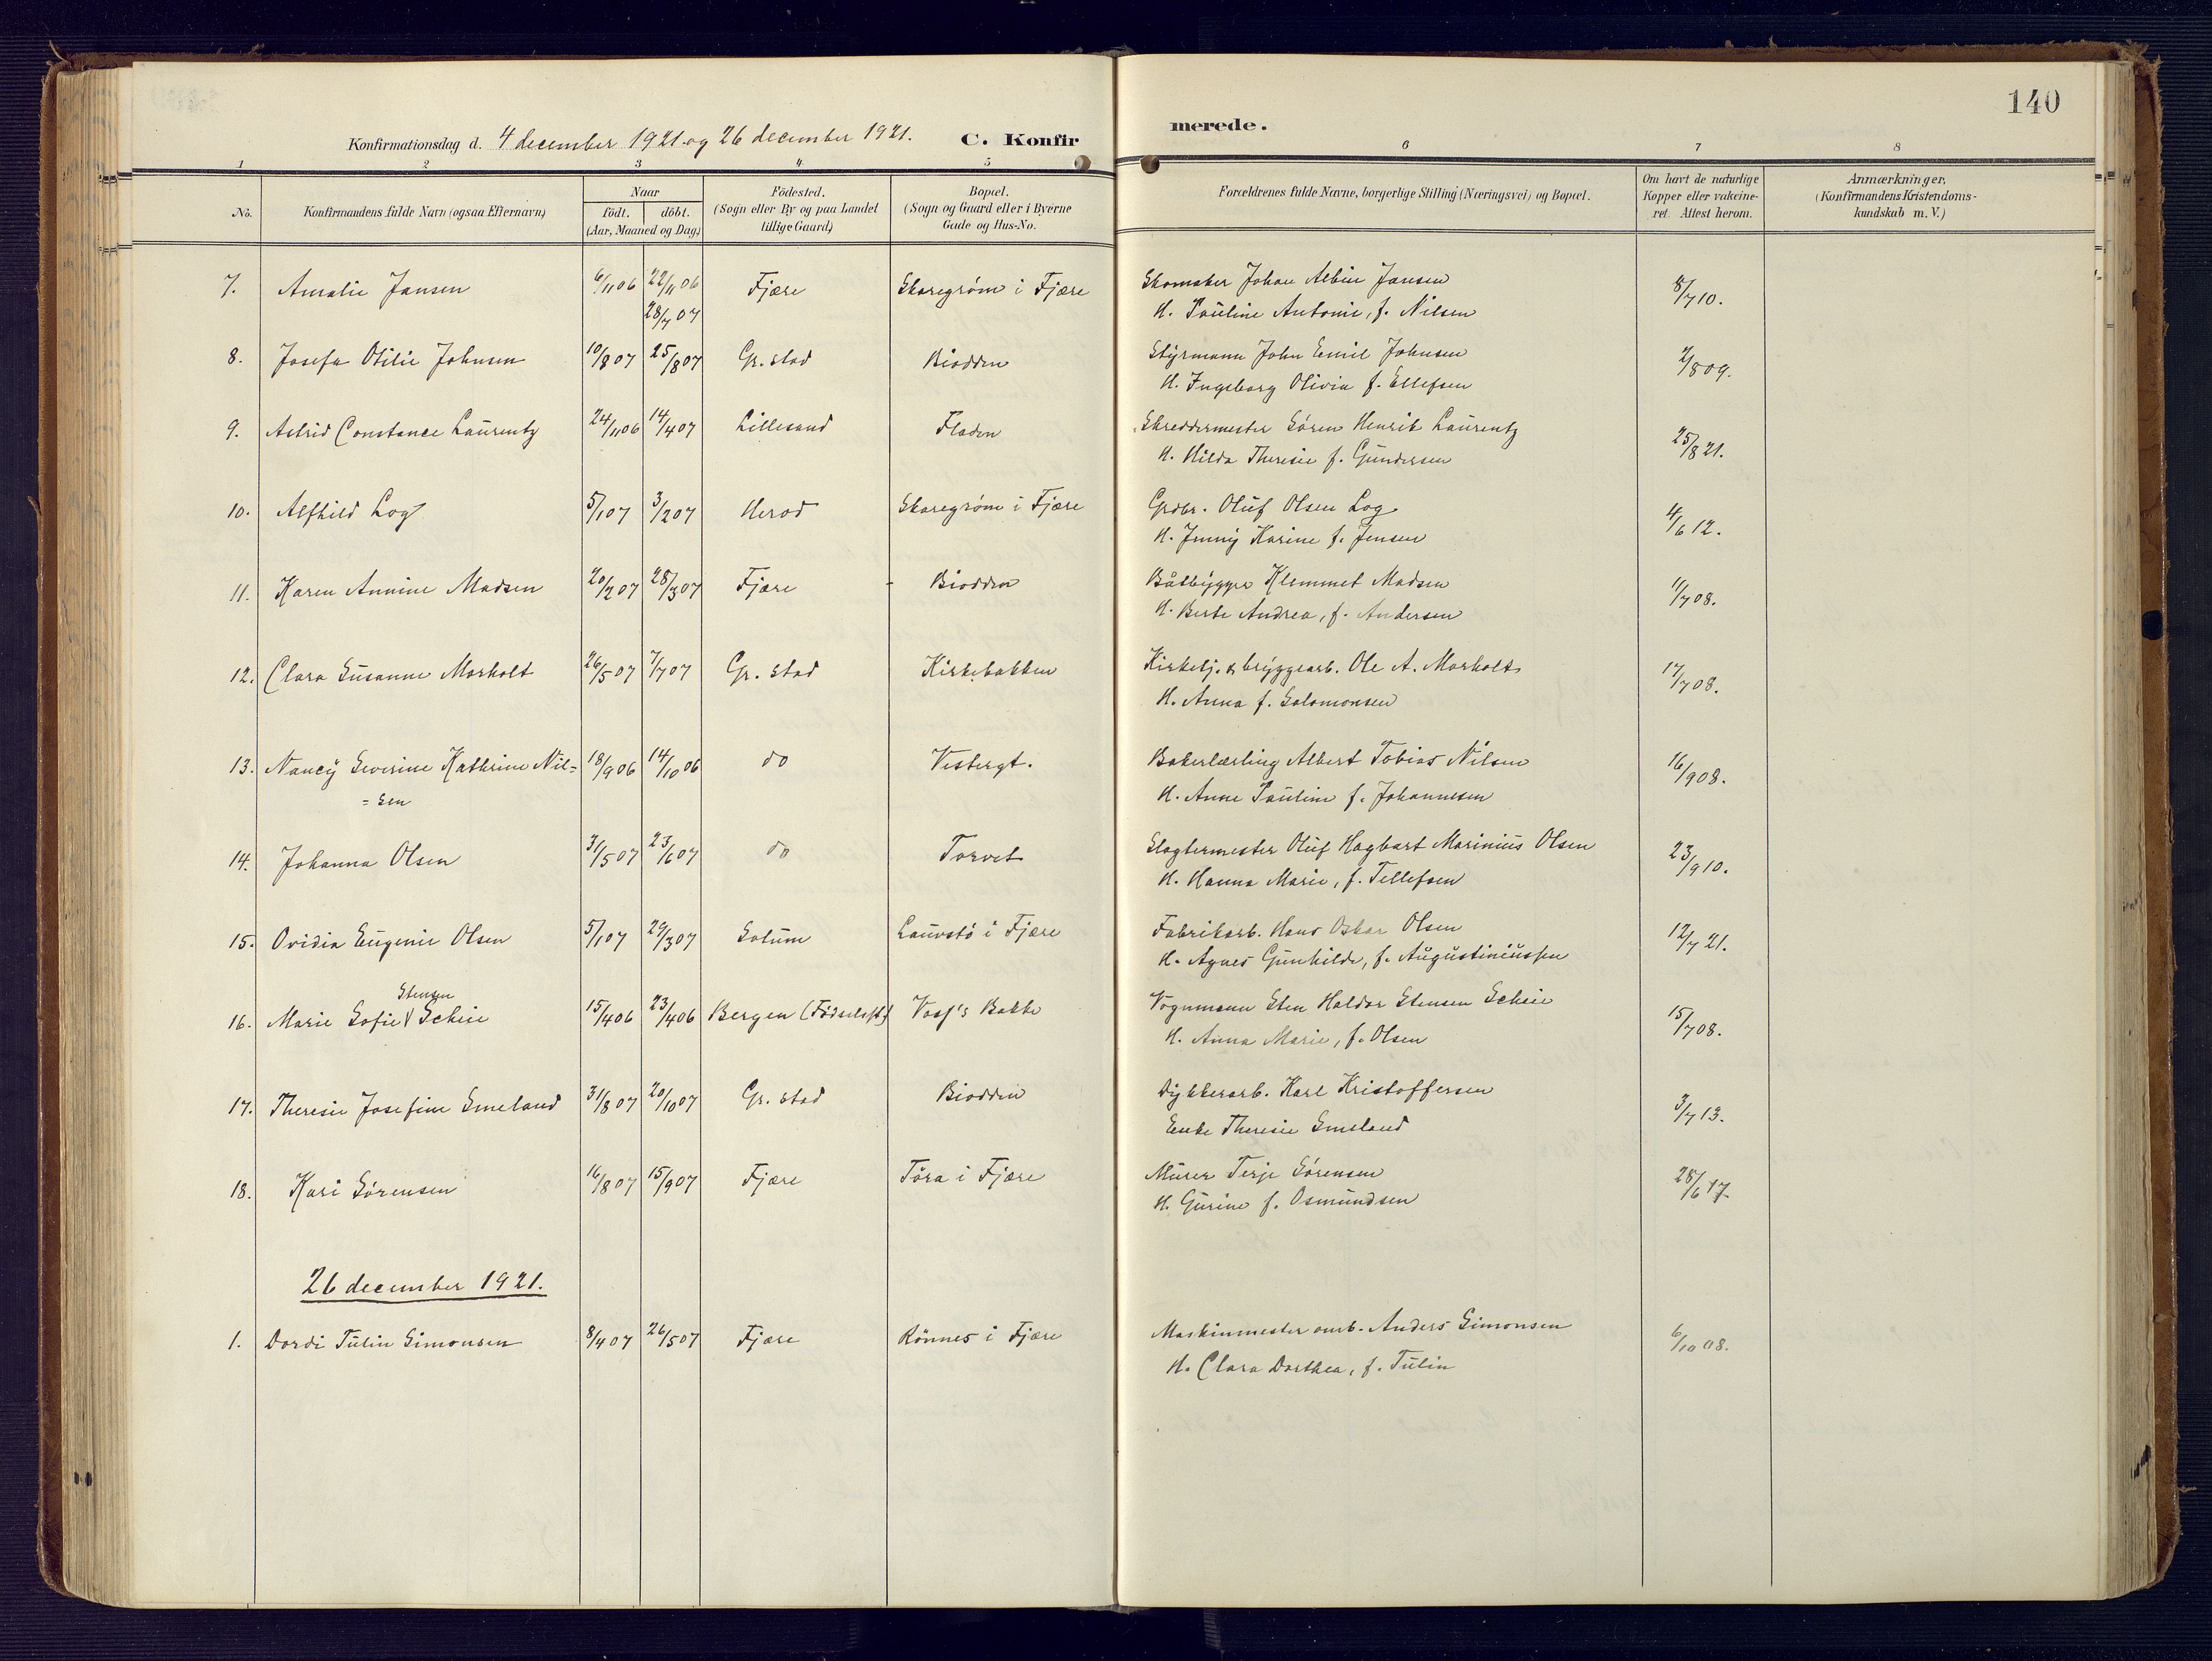 140
Konfirmationsdag d. 4 december 1921 og 26 december 1921. C. Konfirmerede.
1 2 3 4 5 6 7 8
No. Konfirmandens fulde Navn (ogsaa Efternavn) Naar födt. döbt. (Aar, Maaned og Dag.) Födested. (Sogn eller By og paa Landet tillige Gaard) Bopæl. (Sogn og Gaard eller i Byerne Gade og Hus-No. Forældrenes fulde Navne, borgerlige Stilling (Næringsvei) og Bopæl. Om havt de naturlige Kopper eller vakcineret. Attest herom. Anmærkninger. (Konfirmandens Kristendomskundskab m. V.)
7. Amalie Jansen 6/11 06 22/11 06 Fjære Skaregrøm i Fjære Skomaker Johan Albin Jansen 8/7 10.
28/7 07 H. Pauline Antonie, f. Nilsen
8. Josefa Otilie Johnsen 10/8 07 25/8 07 Gr. stad Biodden Styrmann John Emil Johnsen 2/8 09.
H. Ingeborg Olivia f. Ellefsen
9. Astrid Constance Laurentz 24/11 06 14/4 07 Lillesand Fladen Skreddermester Sören Henrik Laurentz 25/8 21.
H. Hilda Theresie f. Gundersen
10. Alfhild Log 5/1 07 3/2 07 Herad Skaregrøm i Fjære Grdbr. Oluf Olsen Log 4/6 12.
H. Jenny Karine f. Jensen
11. Karen Annine Madsen 20/2 07 28/3 07 Fjære Biodden Båtbygger Klemmet Madsen 11/7 08.
H. Berte Andrea, f. Andersen
12. Clara Susanne Morholt 26/5 07 7/7 07 Gr. stad Kirkebakken Kirketj. & bryggearb. Ole A. Morholt 17/7 08.
H. Anna f. Salomonsen
13. Nancy Severine Kathrine Nil= 18/9 06 14/10 06 do Vestergt. Bakerlærling Albert Tobias Nilsen 16/9 08.
=sen H. Anne Pauline f. Johannesen
14. Johanna Olsen 3/5 07 23/6 07 do Torvet Slagtermester Oluf Hagbart Marinius Olsen 23/9 10.
H. Hanna Marie, f. Tellefsen
15. Ovidia Eugenie Olsen 5/1 07 29/3 07 Solum Lauvstø i Fjære Fabrikarb. Hans Oskar Olsen 12/7 21.
H. Agnes Gunhilde, f. Augustiniussen
Stensen
16. Marie Sofie V Scheie 15/4 06 23/4 06 Bergen (Födselsst.) Voss's Bakke Vognmann Sten Haldor Stensen Scheie 15/7 08.
H. Anna Marie, f. Olsen
17. Theresie Josefine Smeland 31/8 07 20/10 07 Gr. stad Biodden Dykkerarb. Karl Kristoffersen 3/7 13.
Enke Theresie Smeland
18. Kari Sörensen 16/8 07 15/9 07 Fjære Töra i Fjære Murer Terje Sörensen 28/6 17.
H. Gurine f. Osmundsen
26 december 1921.
1. Dordi Tulin Simonsen 8/4 07 26/5 07 Fjære Rönnes i Fjære Maskinmester omb. Anders Simonsen 6/10 08.
H. Clara Dorthea, f. Tulin